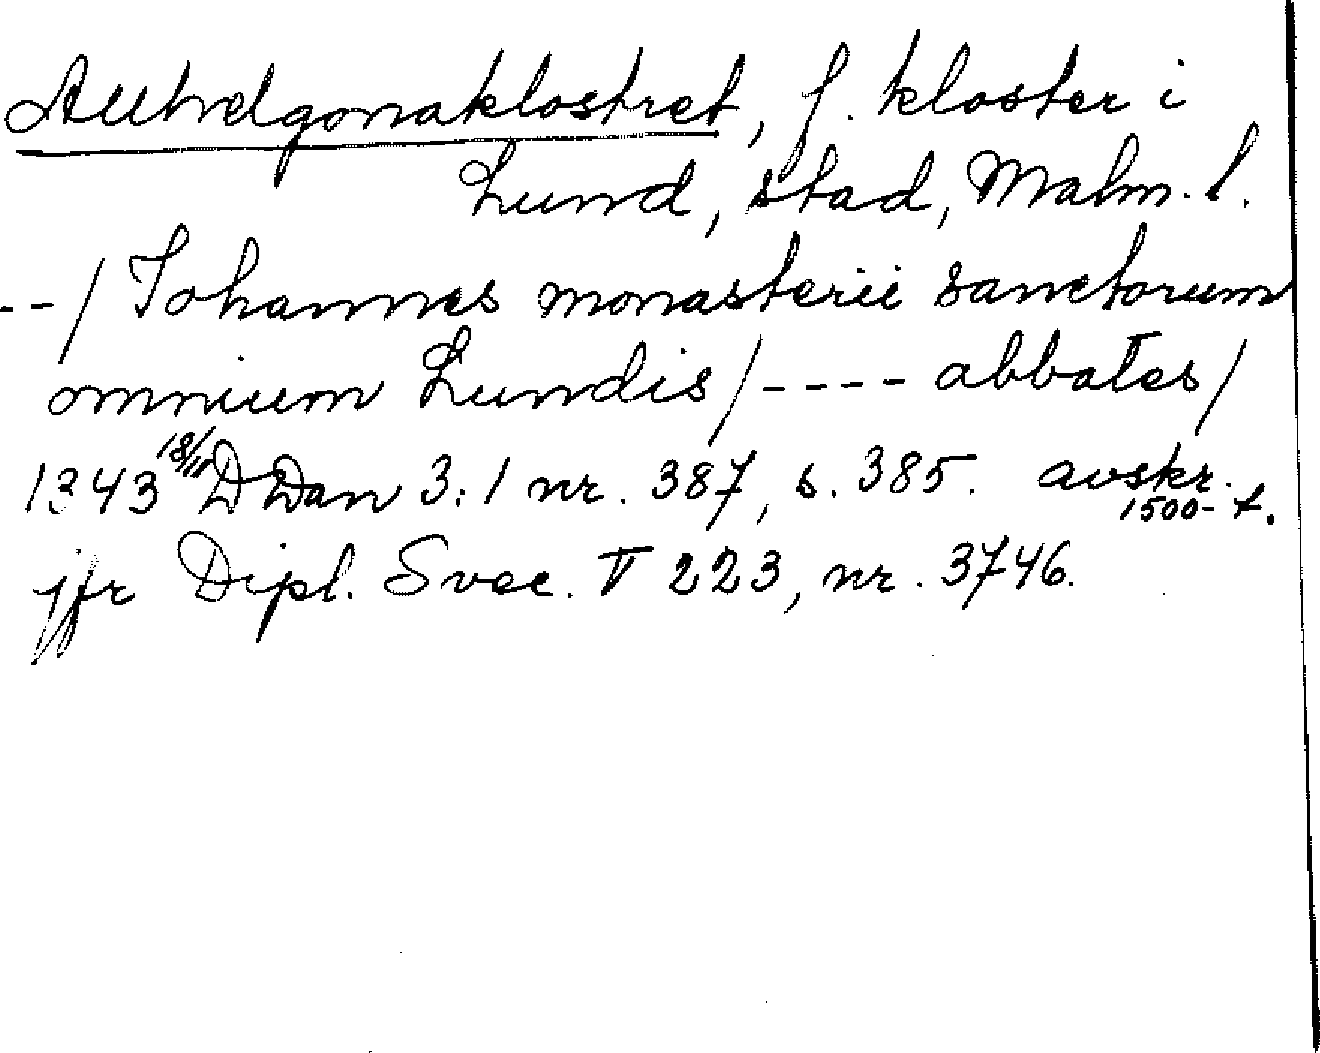 Allhelgonaklostret, f. kloster i
Lund, stad, Malm. l.
--/ Johannes monasterii sanctorum
omnium Lundis /---- abbates /
1343 18/11 DDan 3:1 nr. 387, s. 385. avskr.
1500-t.
jfr Dipl. Svec. V 223, nr. 3746.